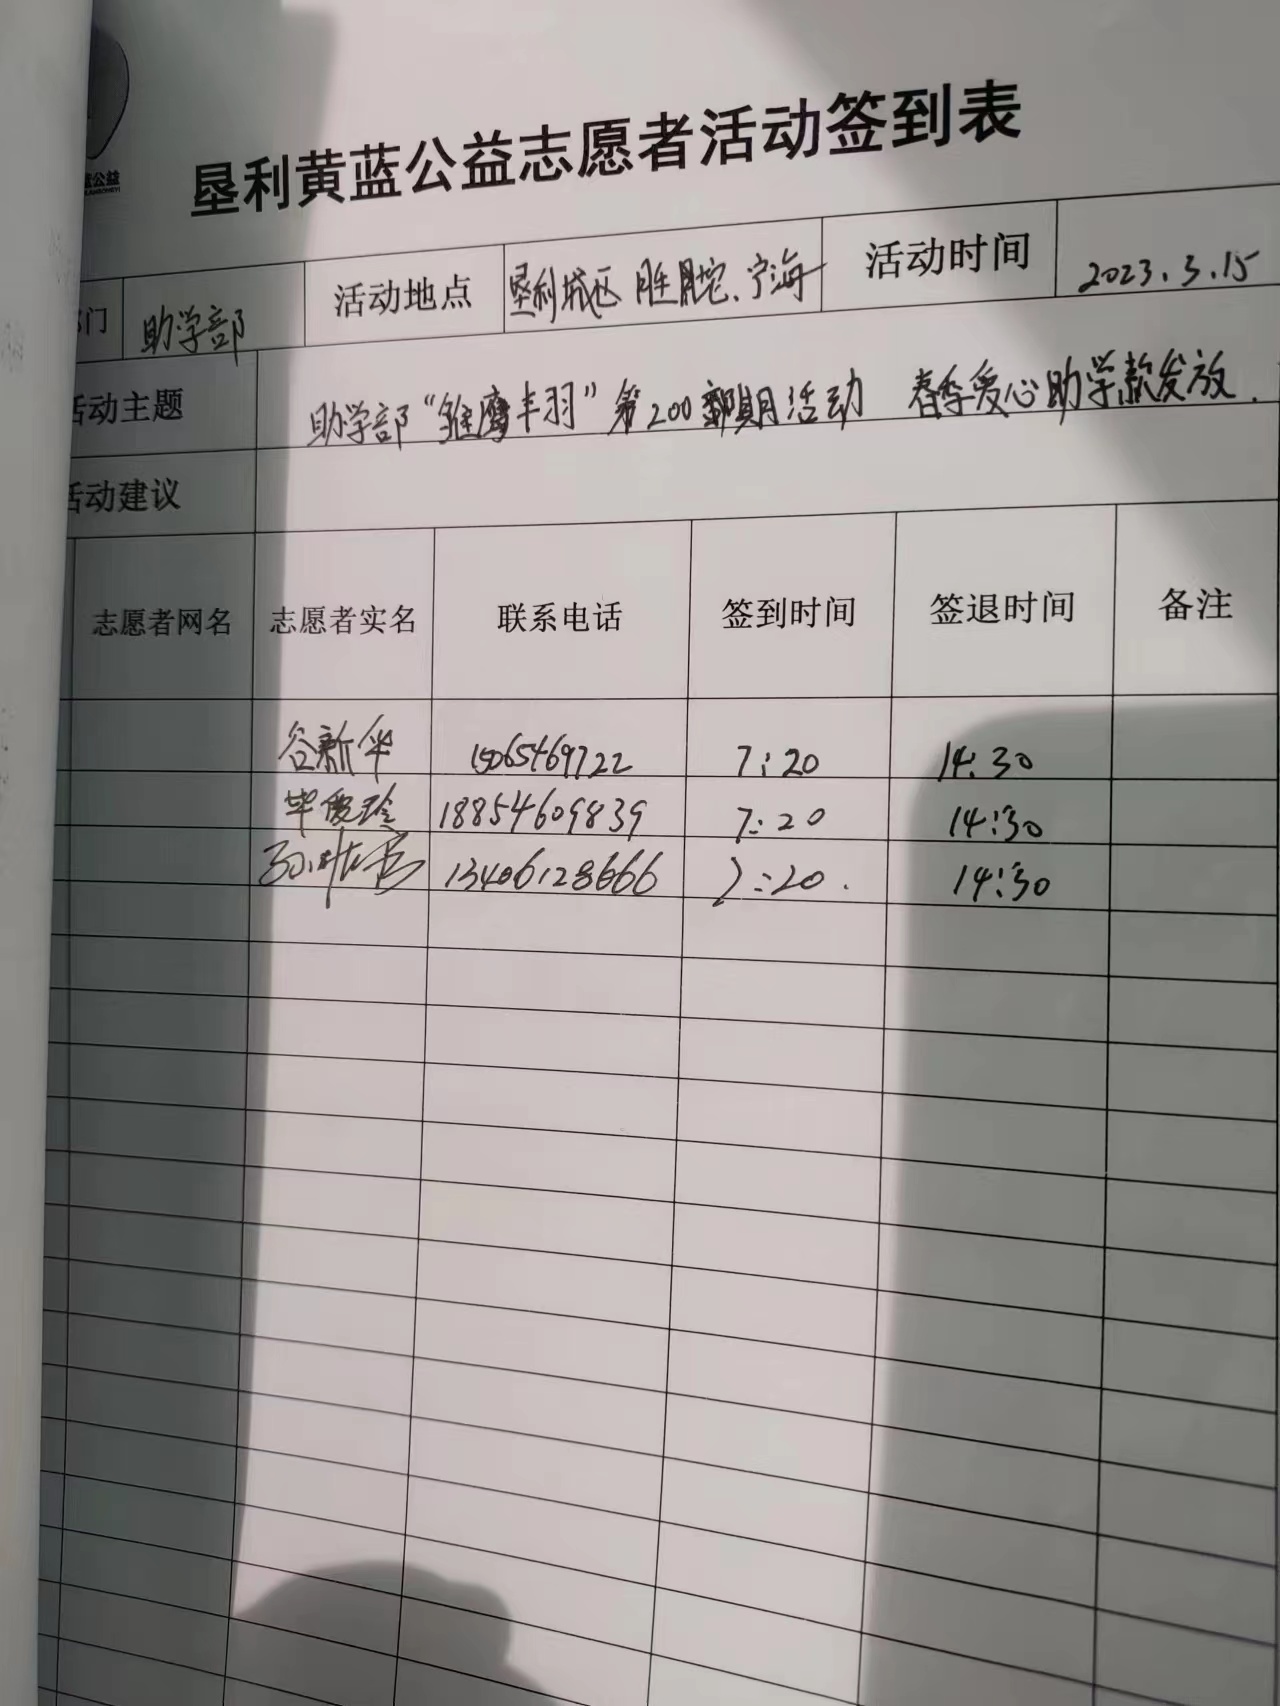 蓝公益
垦利黄蓝公益志愿者活动签到表
部门 助学部 活动地点 垦利城区 胜坨、宁海 活动时间 2023.3.15
活动主题 助学部“雏鹰丰羽”第200期活动 春季爱心助学款发放.
活动建议
志愿者网名 志愿者实名 联系电话 签到时间 签退时间 备注
谷新华 15065469722 7:20 14:30
毕俊玲 18854609839 7:20 14:30
13406128666 7:20. 14:30